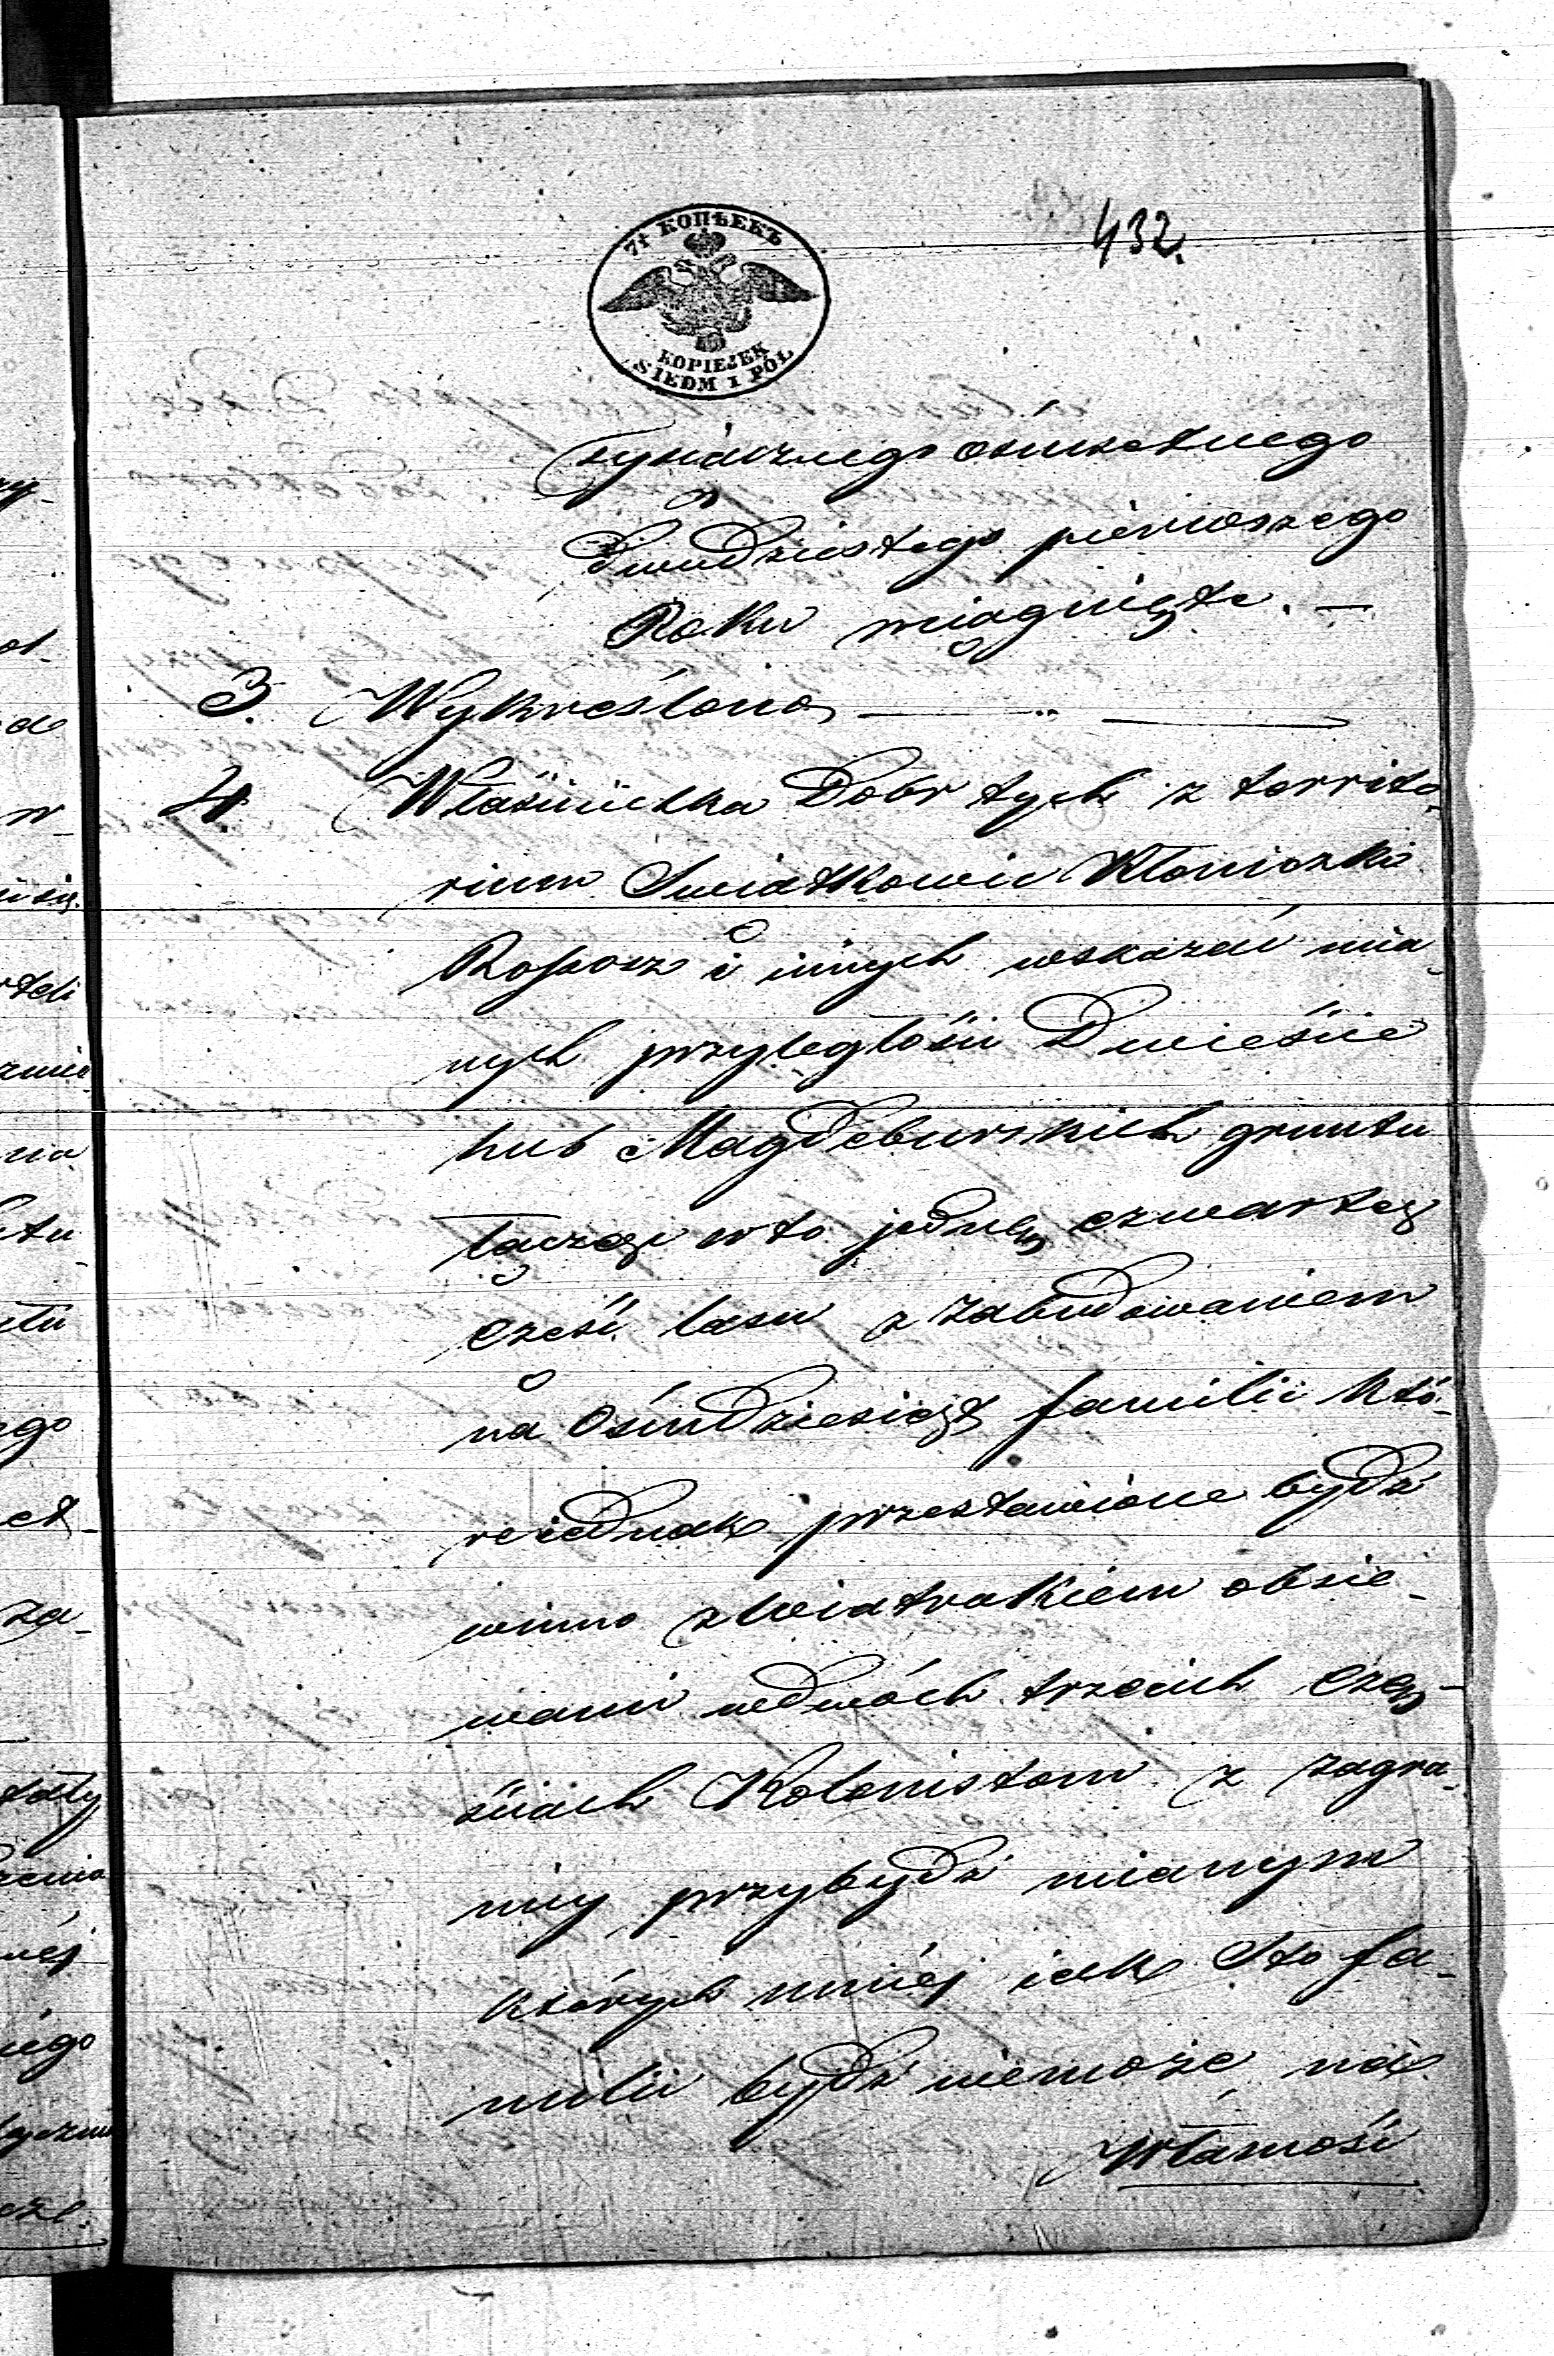 432.
7½ КОПѢЕКЪ
KOPIEJEK
SIEDM I PÓŁ
tysiącznego ośmsetnego
Dwudziestego pierwszego
Roku wciągnięte. —
3. Wykreślono —
4. Właścicielka Dobr tych z territo-
rium Swiątkowic Kłoniczki
Rossosz i innych wskazać mia-
nych przyległości Dwieście
hub Magdeburskich gruntu
łącząc wto jednę czwartą
część lasu z zabudowaniem
na Ośmdziesiąt familii któ-
reiednak przestawione bydź
winno zWiatrakiem obsie-
wami wdwóch trzecich Czę-
ściach Kolonistom z zagra-
nicy przybydź mianym
których mniéj iak Sto fa-
milii bydź niemoże na
Własność